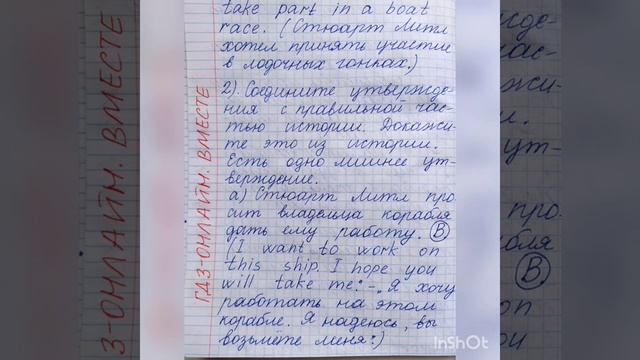 take part in a boat
race. (Стюарт Литл
хотел принять участие
в лодочных гонках.)
2). Соедините утвержде-
ния с правильной час-
тью истории. Докажи-
те это из истории.
Есть одно лишнее ут-
верждение.
а) Стюарт Литл про-
сит владельца корабля
дать ему работу. В
(I want to work on
this ship. I hope you
will take me. -. Я хочу
работать на этом
корабле. Я надеюсь, вы
возьмёте меня.)
ГДЗ-ОНЛАЙН. ВМЕСТЕ
InShOt